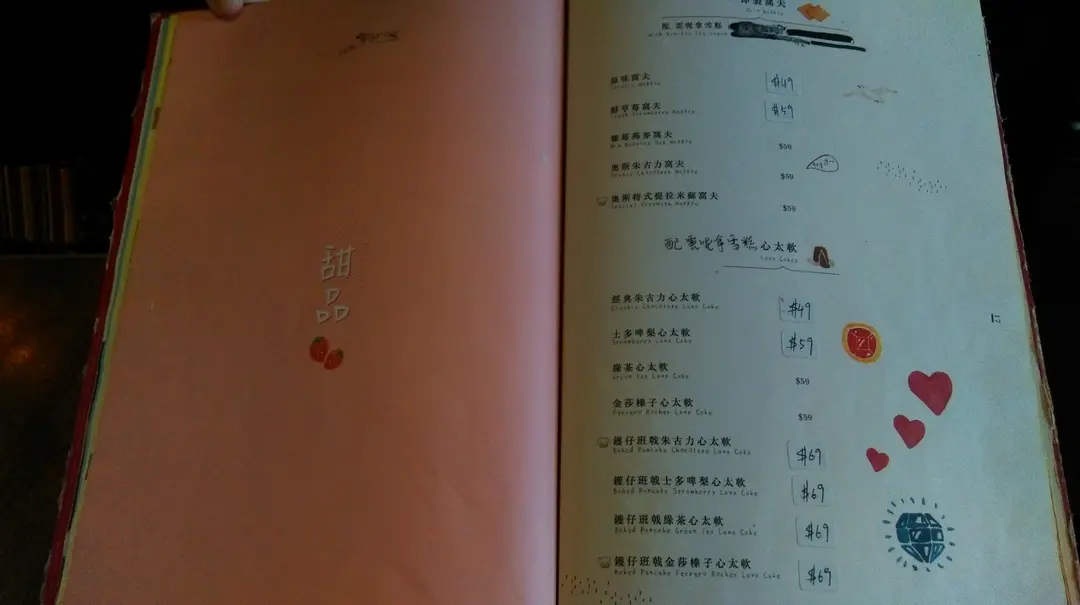 甜
品
即製窩夫
配 雲呢拿雪糕
原味窩夫
$49
鮮草莓窩夫
Fresh Strawberry Waffle
$59
雜莓燕麥窩夫
$59
奧斯朱古力窩夫
$59
奧斯特式提拉米蘇窩夫
Special Tiramisu Waffle
$59
配雲呢拿雪糕心太軟
Lava Cakes
經典朱古力心太軟
Classic Chocolate Lava Cake
$49
士多啤梨心太軟
Strawberry Lava Cake
$59
綠茶心太軟
Green Tea Lava Cake
$59
金莎榛子心太軟
Ferrero Rocher Lava Cake
$59
鑊仔班戟朱古力心太軟
Baked Pancake Chocolate Lava Cake
$69
鑊仔班戟士多啤梨心太軟
Baked Pancake Strawberry Lava Cake
$69
鑊仔班戟綠茶心太軟
Baked Pancake Green Tea Lava Cake
$69
鑊仔班戟金莎榛子心太軟
Baked Pancake Ferrero Rocher Lava Cake
$69